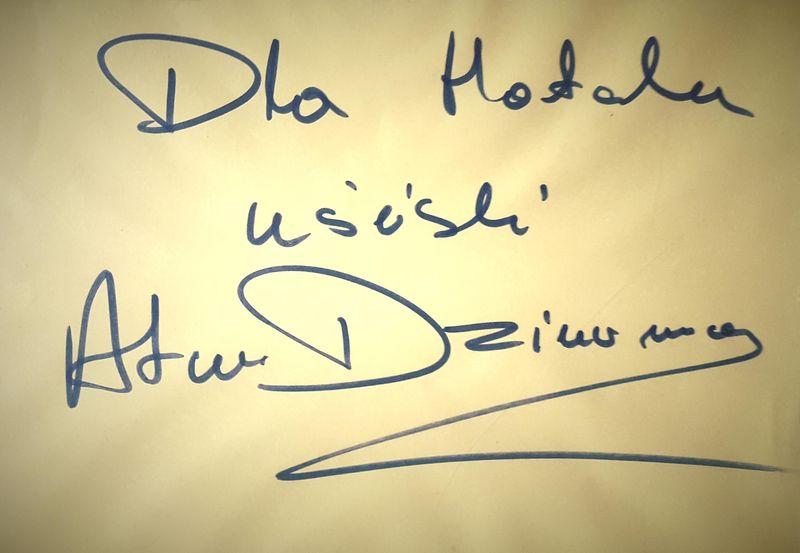 Dla Hotelu
uściski
Artur Dziurman